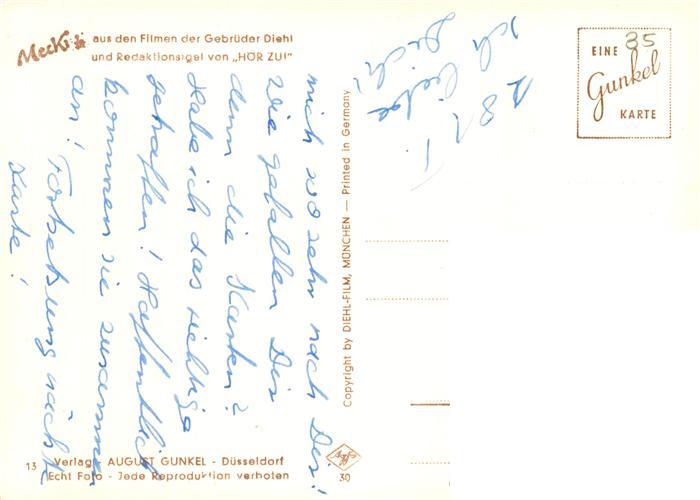 Mecki aus den Filmen der Gebrüder Diehl
und Redaktionsigel von „HÖR ZU!"
mich so sehr nach Dir!
Wie gefallen Dir
denn die Karten?
Habe ich das richtige
getroffen! Hoffentlich
kommen sie zusammen
an! Fortsetzung nächste
Karte!
Ich liebe
Dich!
Copyright by DIEHL-FILM, MÜNCHEN — Printed in Germany
EINE 35
Gunkel
KARTE
13 Verlag AUGUST GUNKEL - Düsseldorf
Echt Foto - Jede Reproduktion verboten
Agfa
30